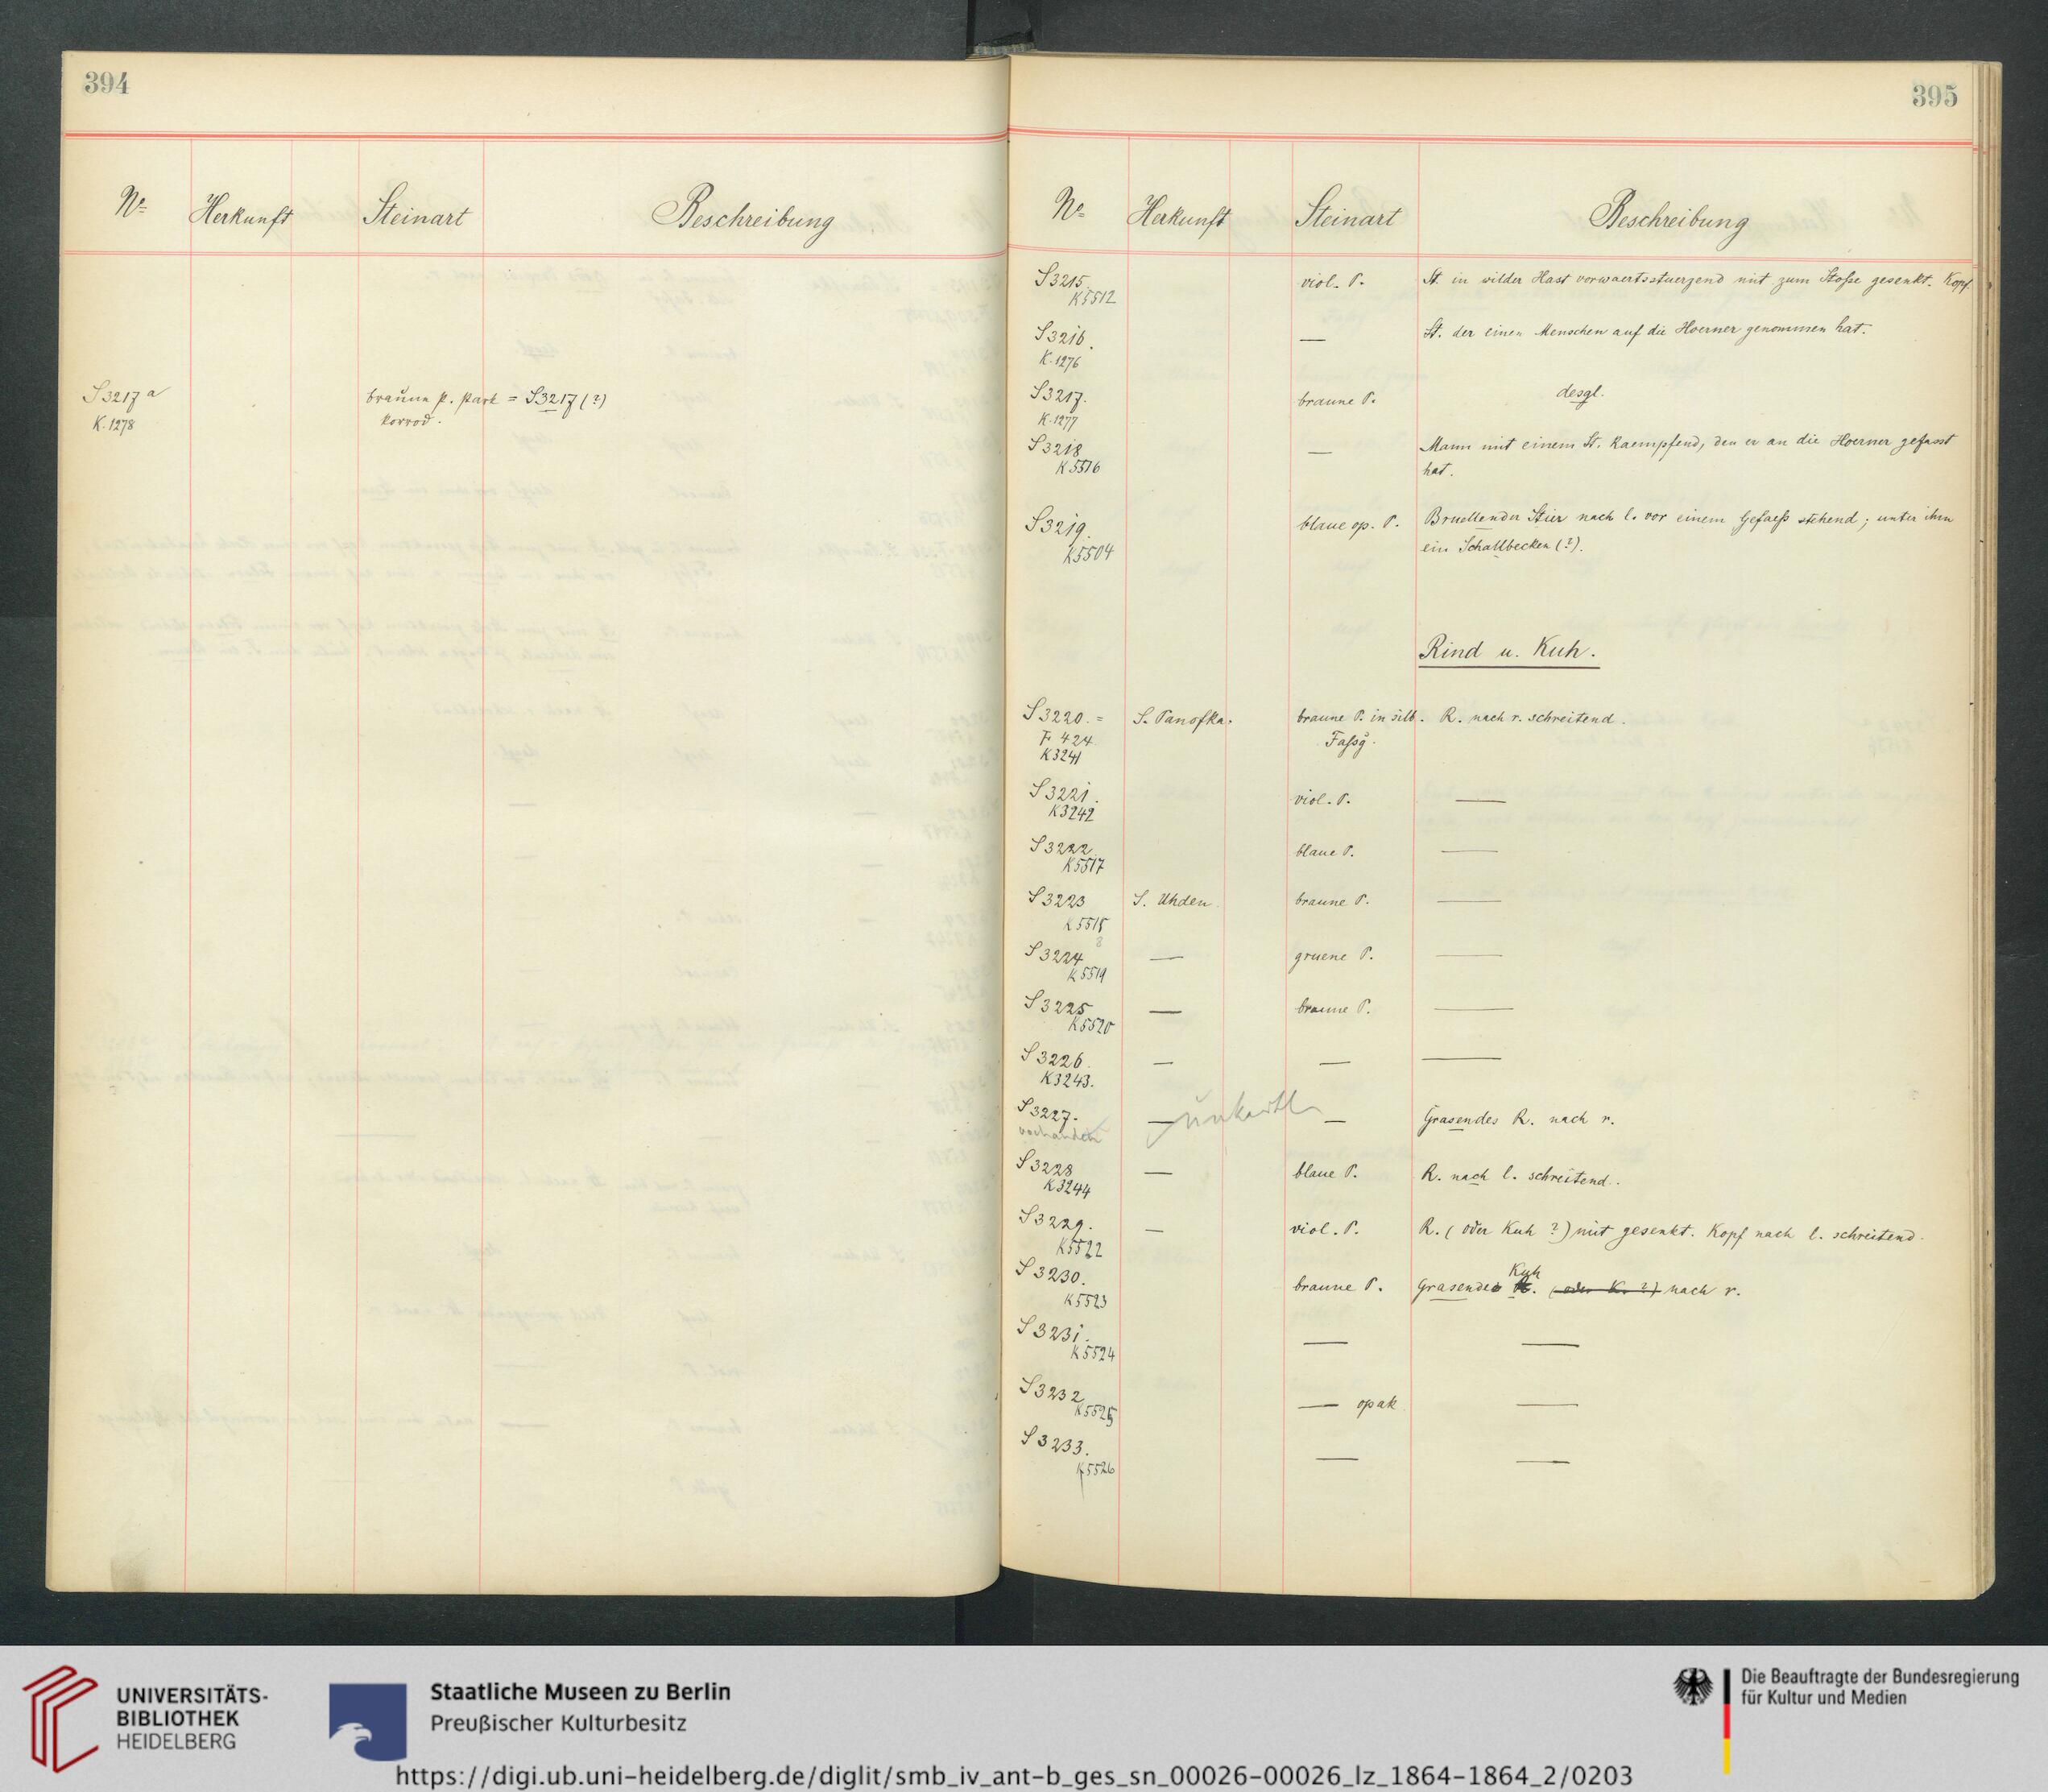 394
№ Herkunft Steinart Beschreibung
S3217a braune P. stark = S3217 (?)
K.1278 korrod.
395
№ Herkunft Steinart Beschreibung
S3215. viol. P. St. in wilder Hast vorwaertsstuerzend mit zum Stoße gesenkt. Kopf.
K5512
S3216. — St. der einen Menschen auf die Hoerner genommen hat.
K.1276
S3217. braune P. desgl.
K.1277
S3218 — Mann mit einem St. kaempfend, den er an die Hoerner gefasst
K5516 hat.
S3219. blaue op. P. Bruellender Stier nach l. vor einem Gefaeß stehend; unter ihm
K5504 ein Schallbecken (?).
Rind u. Kuh.
S3220. = S. Panofka. braune P. in silb. R. nach r. schreitend.
F. 424. Faßg.
K3241
S3221. viol. P. —
K3242
S3222. blaue P. —
K5517
S3223 S. Uhden. braune P. —
K5518
8
S3224 — gruene P. —
K5519
S3225 — braune P. —
K5520
S3226. — — —
K3243.
S3227. — — Grasendes R. nach r.
vorhanden
S3228 — blaue P. R. nach l. schreitend.
K3244
S3229. — viol. P. R. (oder Kuh ?) mit gesenkt. Kopf nach l. schreitend.
K5522
S3230. braune P. Grasende Kuh. (oder K. ?) nach r.
K5523
S3231. — —
K5524
S3232 — opak —
K5525
S3233. — —
K5526
UNIVERSITÄTS-
BIBLIOTHEK
HEIDELBERG
Staatliche Museen zu Berlin
Preußischer Kulturbesitz
Die Beauftragte der Bundesregierung
für Kultur und Medien
https://digi.ub.uni-heidelberg.de/diglit/smb_iv_ant-b_ges_sn_00026-00026_lz_1864-1864_2/0203